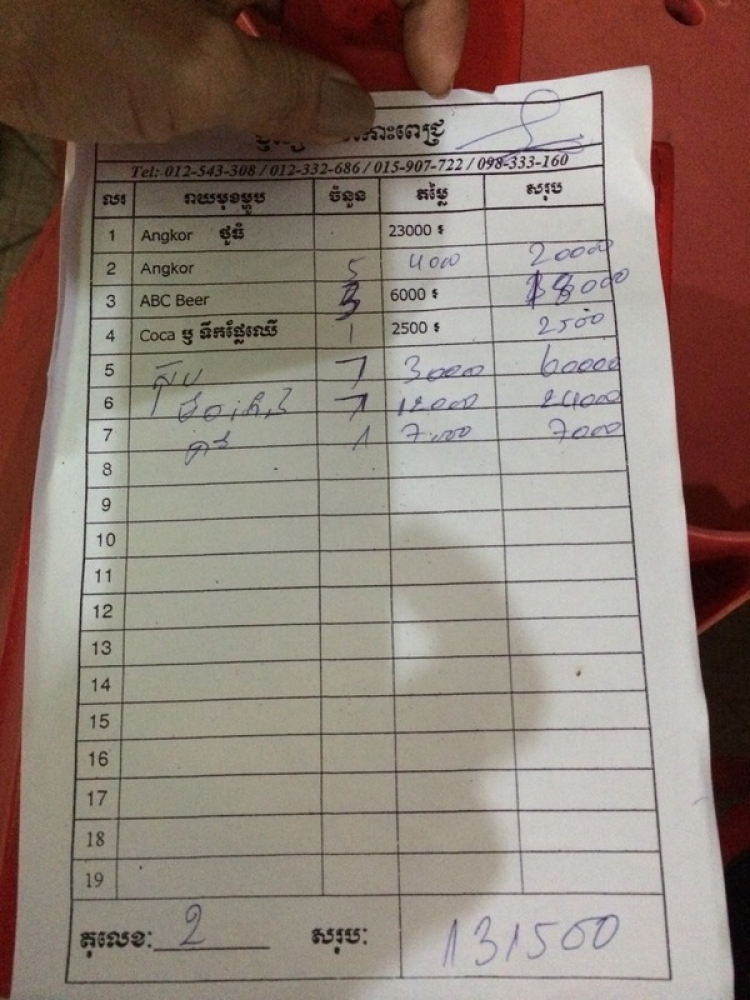 កោះពេជ្រ
Tel: 012-543-308 / 012-332-686 / 015-907-722 / 098-333-160
លរ រាយមុខម្ហូប ចំនួន តម្លៃ សរុប
1 Angkor ថូធំ 23000 ៛
2 Angkor 5 4000 20000
3 ABC Beer 3 6000 ៛ 18000
4 Coca ឬ ទឹកផ្លែឈើ 1 2500 ៛ 2500
5 ស៊ុប 30000 60000
6 12000 24000
7 1 7000 7000
8
9
10
11
12
13
14
15
16
17
18
19
តុលេខ: 2 សរុប: 131500